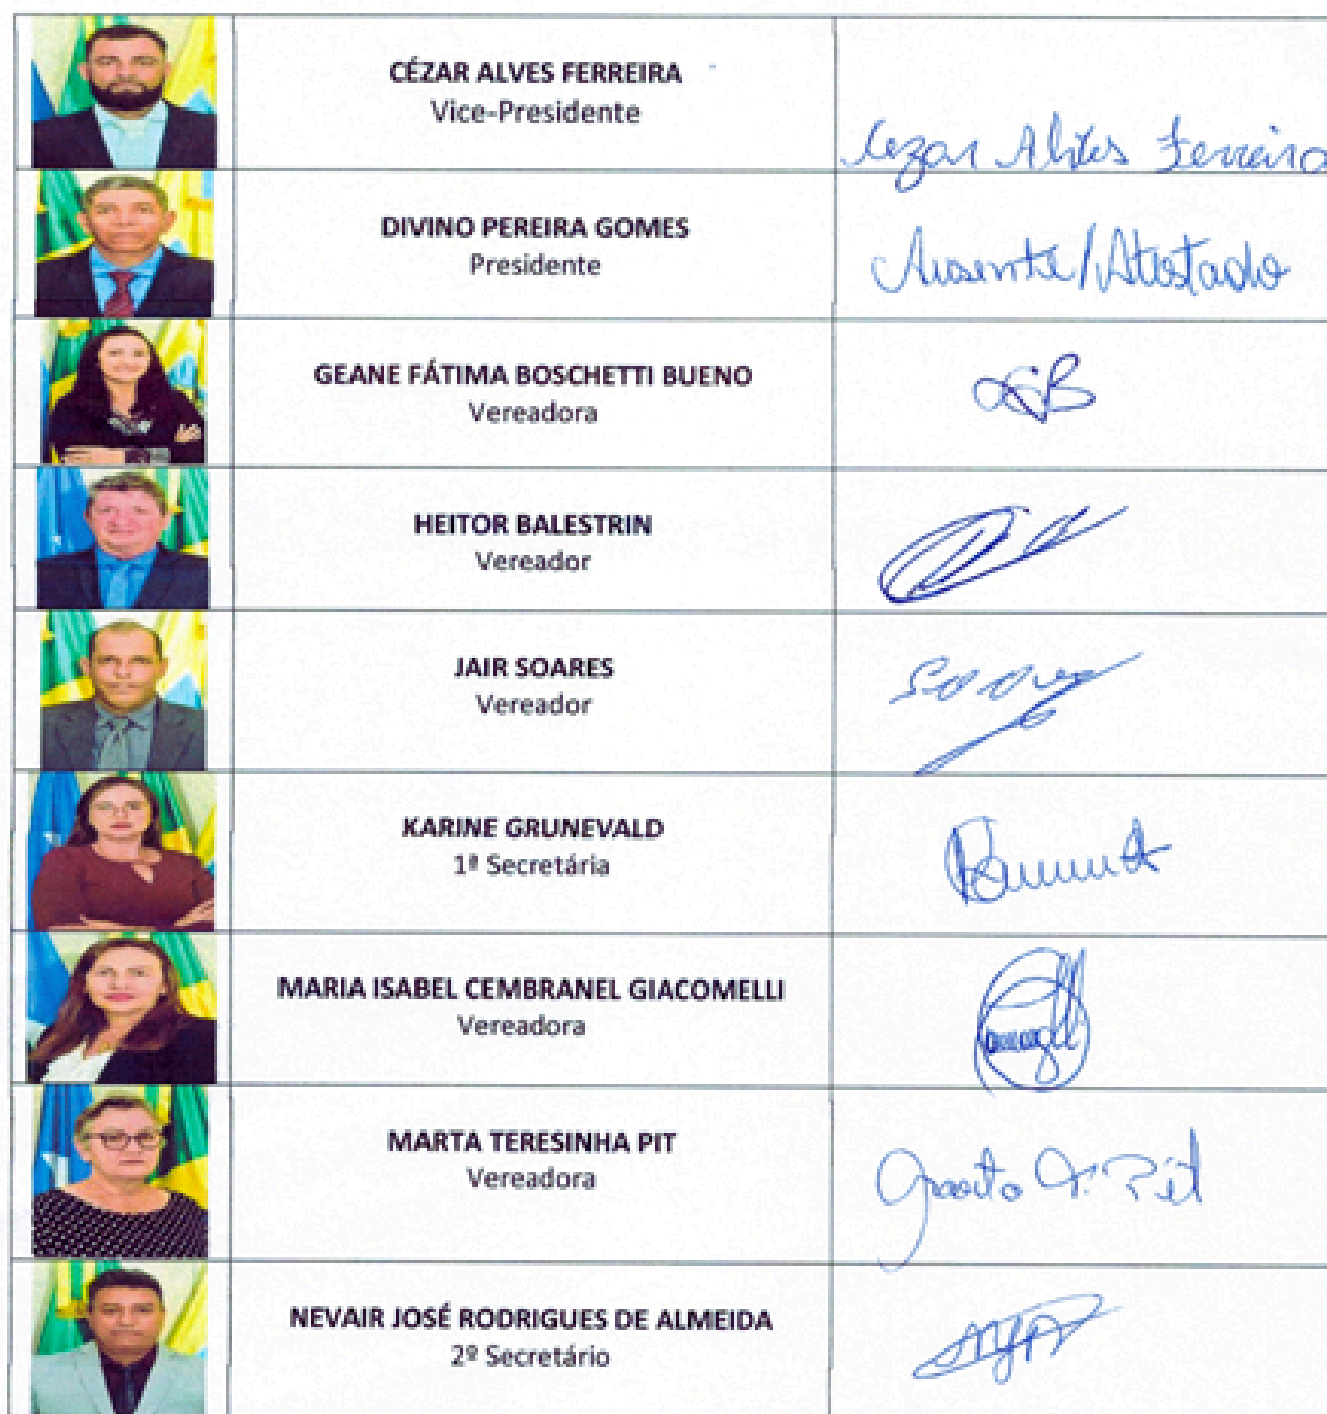 CÉZAR ALVES FERREIRA
Vice-Presidente
Cezar Alves Ferreira
DIVINO PEREIRA GOMES
Presidente
Ausente/Atestado
GEANE FÁTIMA BOSCHETTI BUENO
Vereadora
HEITOR BALESTRIN
Vereador
JAIR SOARES
Vereador
Soares
KARINE GRUNEVALD
1ª Secretária
MARIA ISABEL CEMBRANEL GIACOMELLI
Vereadora
MARTA TERESINHA PIT
Vereadora
Marta T. Pit
NEVAIR JOSÉ RODRIGUES DE ALMEIDA
2º Secretário